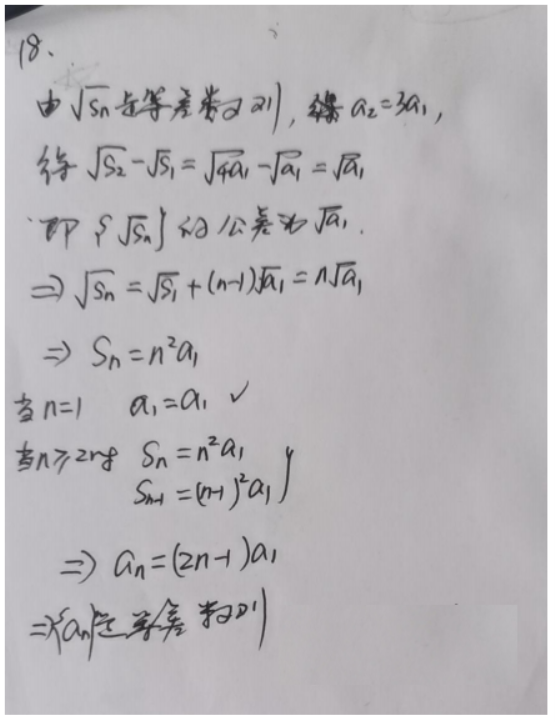 18.
由√Sn是等差数列, a₂=3a₁,
得 √S₂-√S₁=√4a₁-√a₁=√a₁
即{√Sn}的公差为√a₁.
⇒√Sn=√S₁+(n-1)√a₁=n√a₁
⇒ Sn=n²a₁
当n=1 a₁=a₁ ✓
当n≥2时 Sn=n²a₁
Sn-1=(n-1)²a₁}
⇒ an=(2n-1)a₁
⇒{an}是等差数列